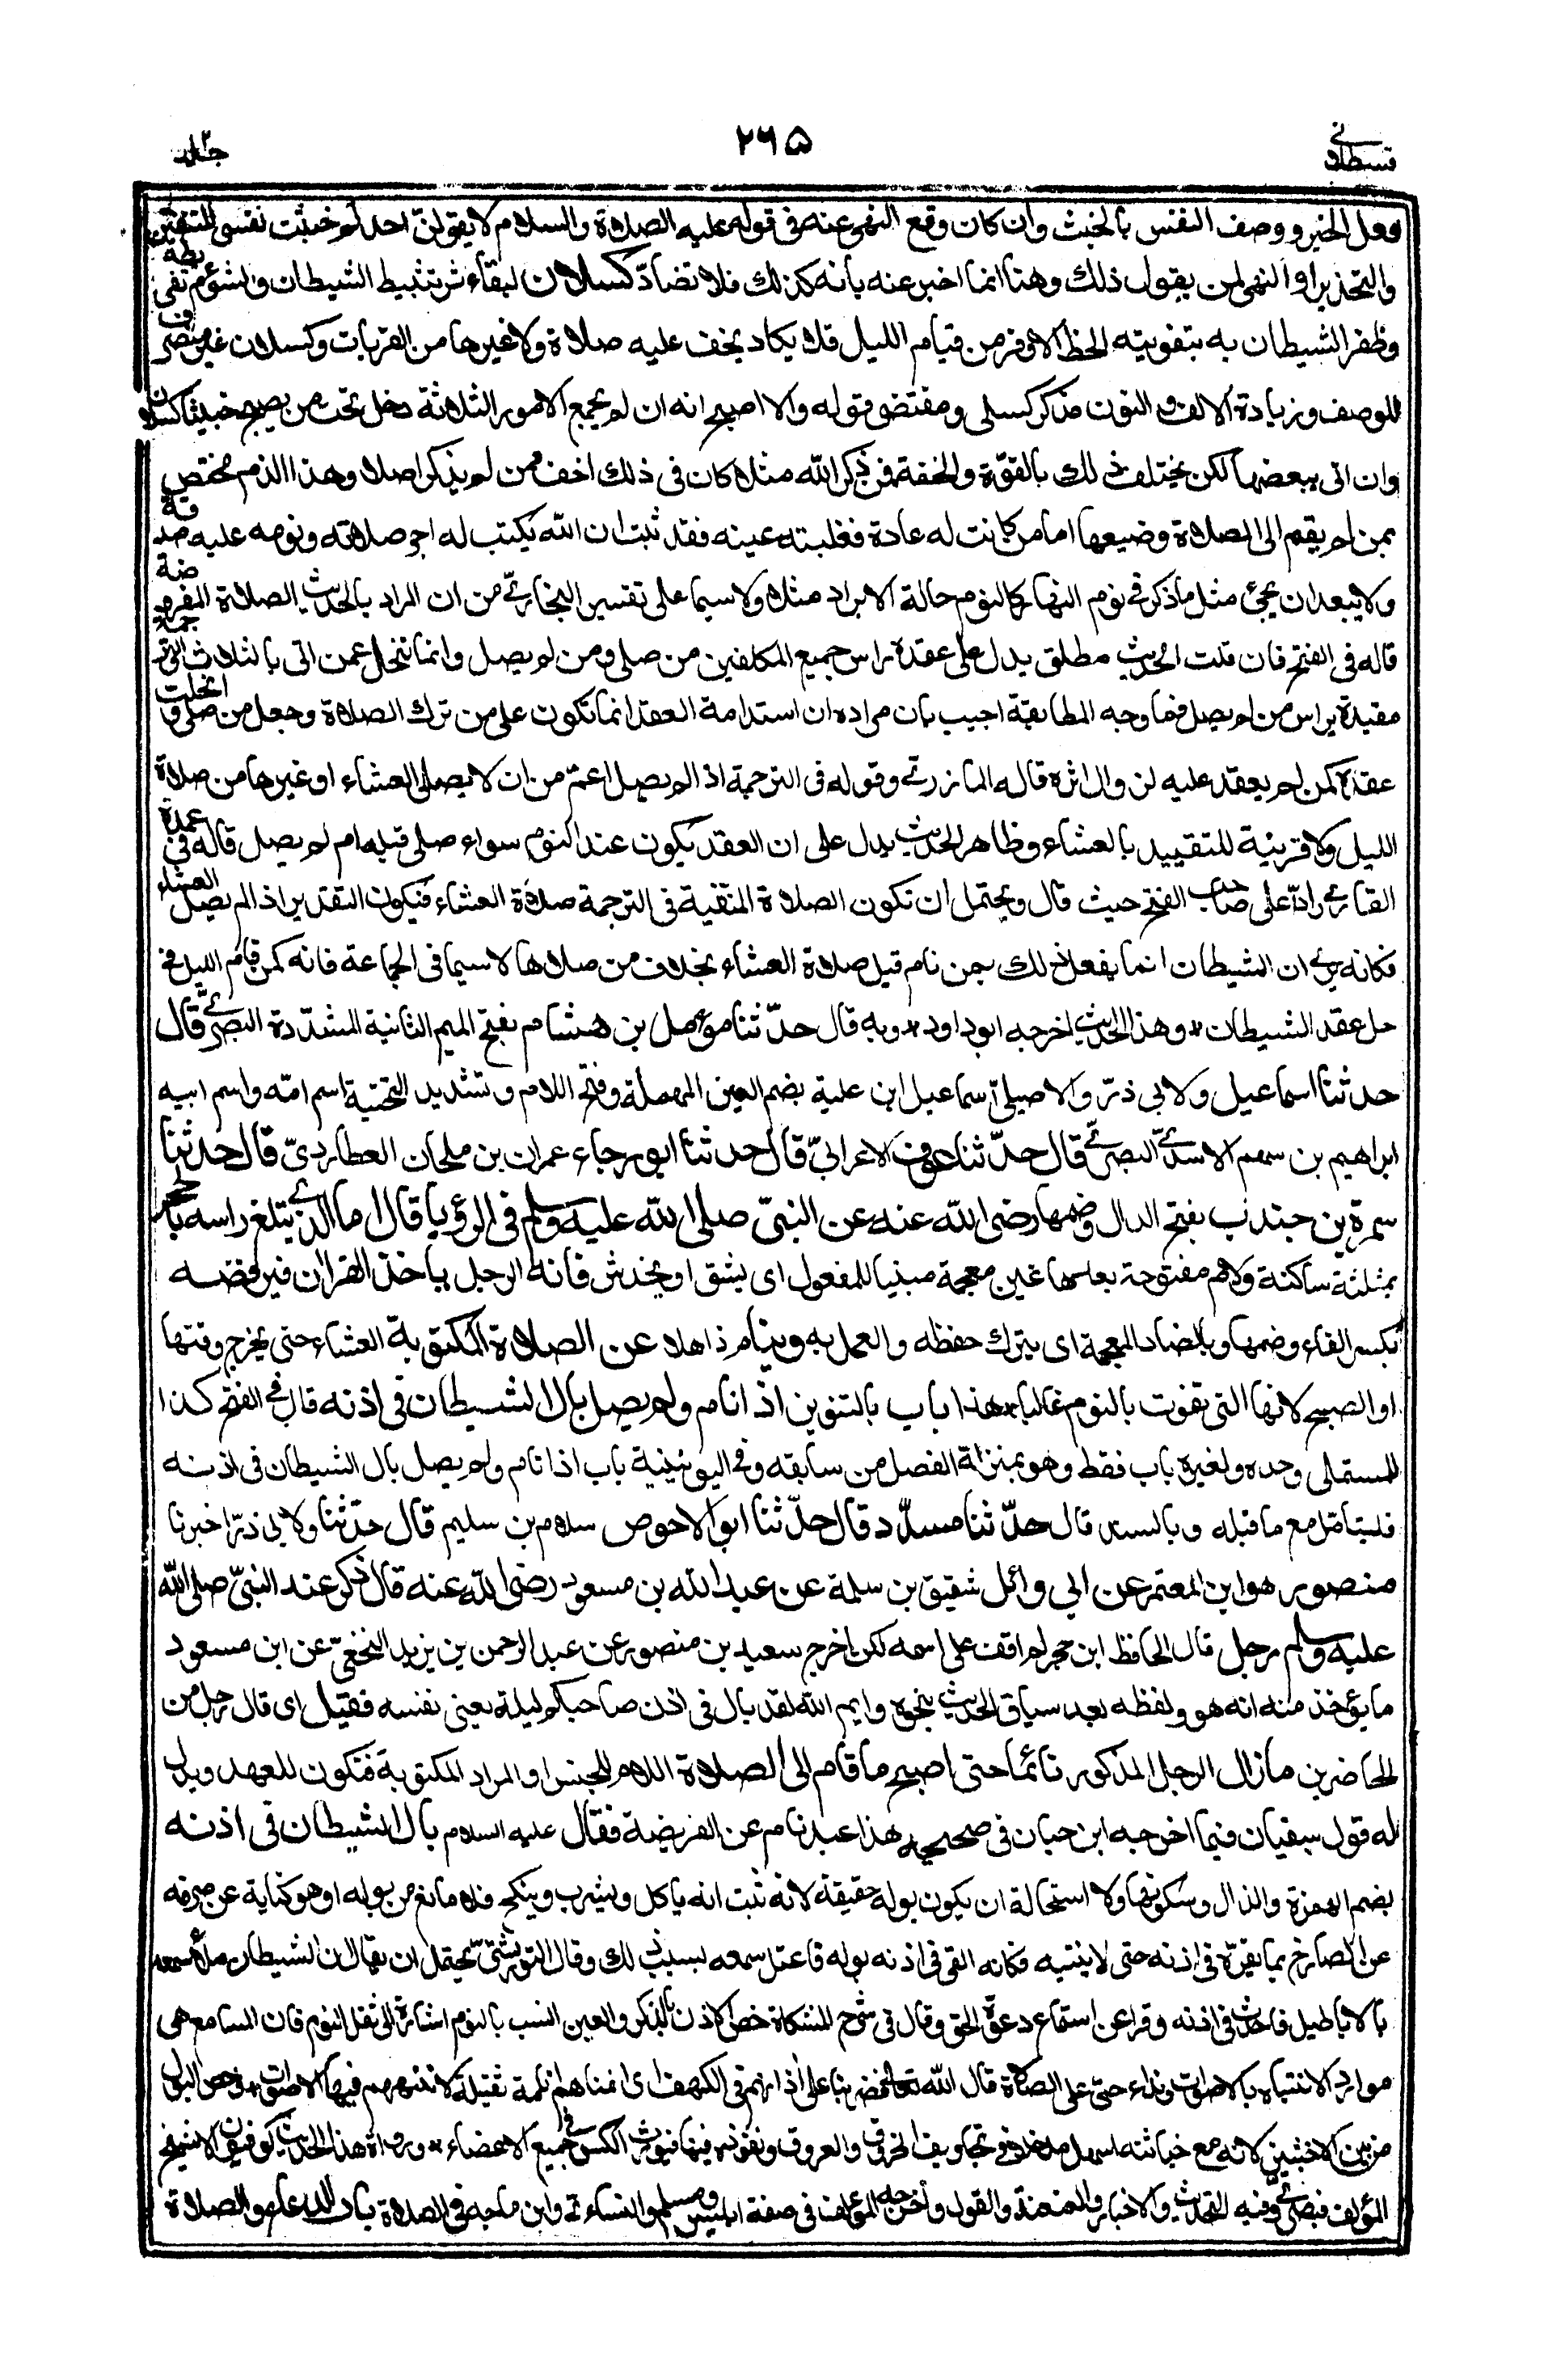 قسطلانی ٢٦۵ جلد٢
فعل الخير ووصف النفس بالخبث وان كان وقع النهى عنه فى قوله عليه الصلاة والسلام لا يقولنّ احدكم خبثت نفسى للتنفير
والتحذير او النهى لمن يقول ذلك وهنا انما اخبر عنه بانه كذلك فلا تضادّ كسلان لبقاء اثر تثبيط الشيطان ولشؤم تفريطه
وظفر الشيطان به بتفويته الحظ الاوفر من قيام الليل فلا يكاد يخف عليه صلاة ولا غيرها من القربات وكسلان غير منصرف
للوصف وزيادة الالف والنون مذكر كسلى ومقتضى قوله والا اصبح انه ان لم يجمع الامور الثلاثة دخل تحت من يصبح خبيثا كسلان
وان اتى ببعضها لكن يختلف ذلك بالقوّة والخفة فمن ذكر الله مثلا كان فى ذلك اخف ممن لم يذكر اصلا وهذا الذم مختص
بمن لم يقم الى الصلاة وضيعها اما من كانت له عادة فغلبته عينه فقد ثبت ان الله يكتب له اجر صلاته ونومه عليه صدقة
ولا يبعد ان يجئ مثل ما ذكر فى نوم النهار كالنوم حالة الابراد مثلا ولا سيما على تفسير البخارىّ من ان المراد بالحديث الصلاة المفروضة
قاله فى الفتح فان قلت الحديث مطلق يدل على عقده راس جميع المكلفين من صلى ومن لم يصل وانما تنحل عمن اتى بالثلاث والترجمة
مقيدة براس من لم يصل فما وجه المطابقة اجيب بان مراده ان استدامة العقد انما تكون على من ترك الصلاة وجعل من صلى وانحلت
عقده كمن لم يعقد عليه لزوال اثره قاله المازرىّ وقوله فى الترجمة اذا لم يصل اعمّ من ان لا يصلى العشاء او غيرها من صلاة
الليل ولا قرينة للتقييد بالعشاء وظاهر الحديث يدل على ان العقد يكون عند النوم سواء صلى قبله ام لم يصل قاله فى عمدة
القارئ رادّا على صاحب الفتح حيث قال ويحتمل ان تكون الصلاة المنفية فى الترجمة صلاة العشاء فيكون التقدير اذا لم يصل العشاء
فكانه يرى ان الشيطان انما يفعل ذلك بمن نام قبل صلاة العشاء بخلاف من صلاها لاسيما فى الجماعة فانه كمن قام الليل فى
حل عقد الشيطان * وهذا الحديث اخرجه ابو داود * وبه قال حدّثنا مؤمل بن هشام بفتح الميم الثانية المشدّدة البصرىّ قال
حدثنا اسماعيل ولابى ذرّ والاصيلىّ اسماعيل ابن علية بضم العين المهملة وفتح اللام وتشديد التحتية اسم امّه واسم ابيه
ابراهيم بن سهم الاسدىّ البصرىّ قال حدّثنا عوف الاعرابىّ قال حدثنا ابو رجاء عمران بن ملحان العطاردىّ قال حدثنا
سمرة بن جندب بفتح الدال وضمها رضى الله عنه عن النبىّ صلى الله عليه وسلم فى الرؤيا قال اما الذى يثلغ راسه بالحجر
بمثلثة ساكنة ولام مفتوحة بعدها غين معجمة مبنيا للمفعول اى يشق او يخدش فانه الرجل ياخذ القران فيرفضه
بكسر الفاء وضمها وبالضاد المعجمة اى يترك حفظه والعمل به وينام ذاهلا عن الصلاة المكتوبة العشاء حتى يخرج وقتها
او الصبح لانها التى تفوت بالنوم غالبا * هذا باب بالتنوين اذا نام ولم يصل بال الشيطان فى اذنه قال فى الفتح كذا
للمستملى وحده ولغيره باب فقط وهو بمنزلة الفصل من سابقه وفى اليونينية باب اذا نام ولم يصل بال الشيطان فى اذنه
فليتامّل مع ما قبله وبالسند قال حدّثنا مسدّد قال حدّثنا ابو الاحوص سلام بن سليم قال حدّثنا ولابى ذرّ اخبرنا
منصور هو ابن المعتمر عن ابى وائل شقيق بن سلمة عن عبد الله بن مسعود رضى الله عنه قال ذكر عند النبىّ صلى الله
عليه وسلم رجل قال الحافظ ابن حجر لم اقف على اسمه لكن اخرج سعيد بن منصور عن عبد الرحمن بن يزيد النخعىّ عن ابن مسعود
ما يؤخذ منه انه هو ولفظه بعد سياق الحديث بنحوه وايم الله لقد بال فى اذن صاحبكم ليلة يعنى نفسه فقيل اى قال رجل من
الحاضرين مازال الرجل المذكور نائما حتى اصبح ما قام الى الصلاة اللام للجنس او المراد المكتوبة فتكون للعهد ويدل
له قول سفيان فيما اخرجه ابن حبان فى صحيحه هذا عبد نام عن الفريضة فقال عليه السلام بال الشيطان فى اذنه
بضم الهمزة والذال وسكونها ولا استحالة ان يكون بوله حقيقة لانه ثبت انه ياكل ويشرب وينكح فلا مانع من بوله او هو كناية عن صرفه
عن الصارخ بما يقرّه فى اذنه حتى لا ينتبه فكانه القى فى اذنه بوله فاعتل سمعه بسبب ذلك وقال التوربشتىّ يحتمل ان يقال ان الشيطان ملأ سمعه
بالاباطيل فاحدث فى اذنه وقرا عن استماع دعوة الحق وقال فى شرح المشكاة خص الاذن بالذكر والعين انسب بالنوم اشارة الى ثقل النوم فان المسامع هى
موارد الانتباه بالاصوات ونداء حى على الصلاة قال الله تعالى فضربنا على اذانهم فى الكهف اى انمناهم انامة ثقيلة لا تنبههم فيها الاصوات * وخص البول
من بين الاخبثين لانه مع خباثته اسهل مدخلا فى تجاويف الخروق والعروق ونفوذه فيها فيورث الكسل فى جميع الاعضاء * ورواة هذا الحديث كوفيون الا شيخ
المؤلف فبصرىّ وفيه التحديث والاخبار والعنعنة والقول واخرجه المؤلف فى صفة ابليس ومسلم والنساءى وابن ماجه فى الصلاة باب الدعاء والصلاة